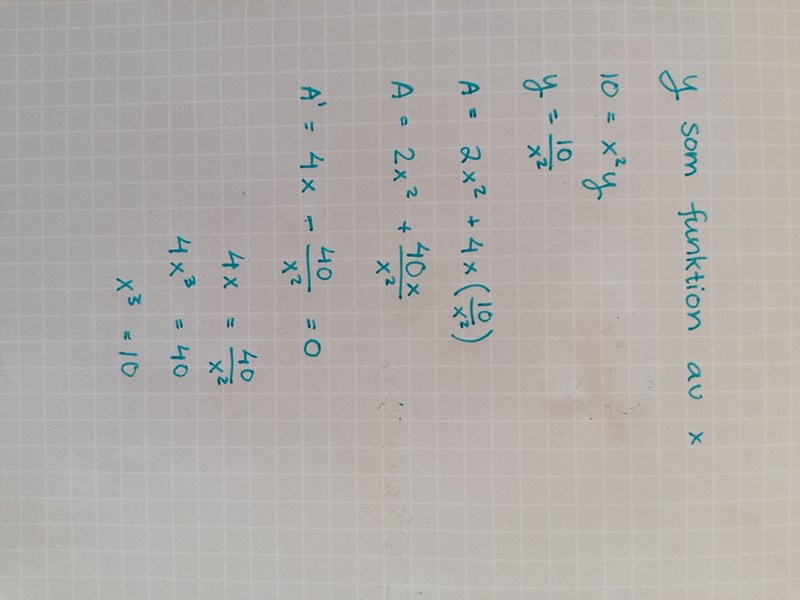 y som funktion av x
10 = x²y
y = 10/x²
A = 2x² + 4x(10/x²)
A = 2x² + 40x/x²
A' = 4x - 40/x² = 0
4x = 40/x²
4x³ = 40
x³ = 10